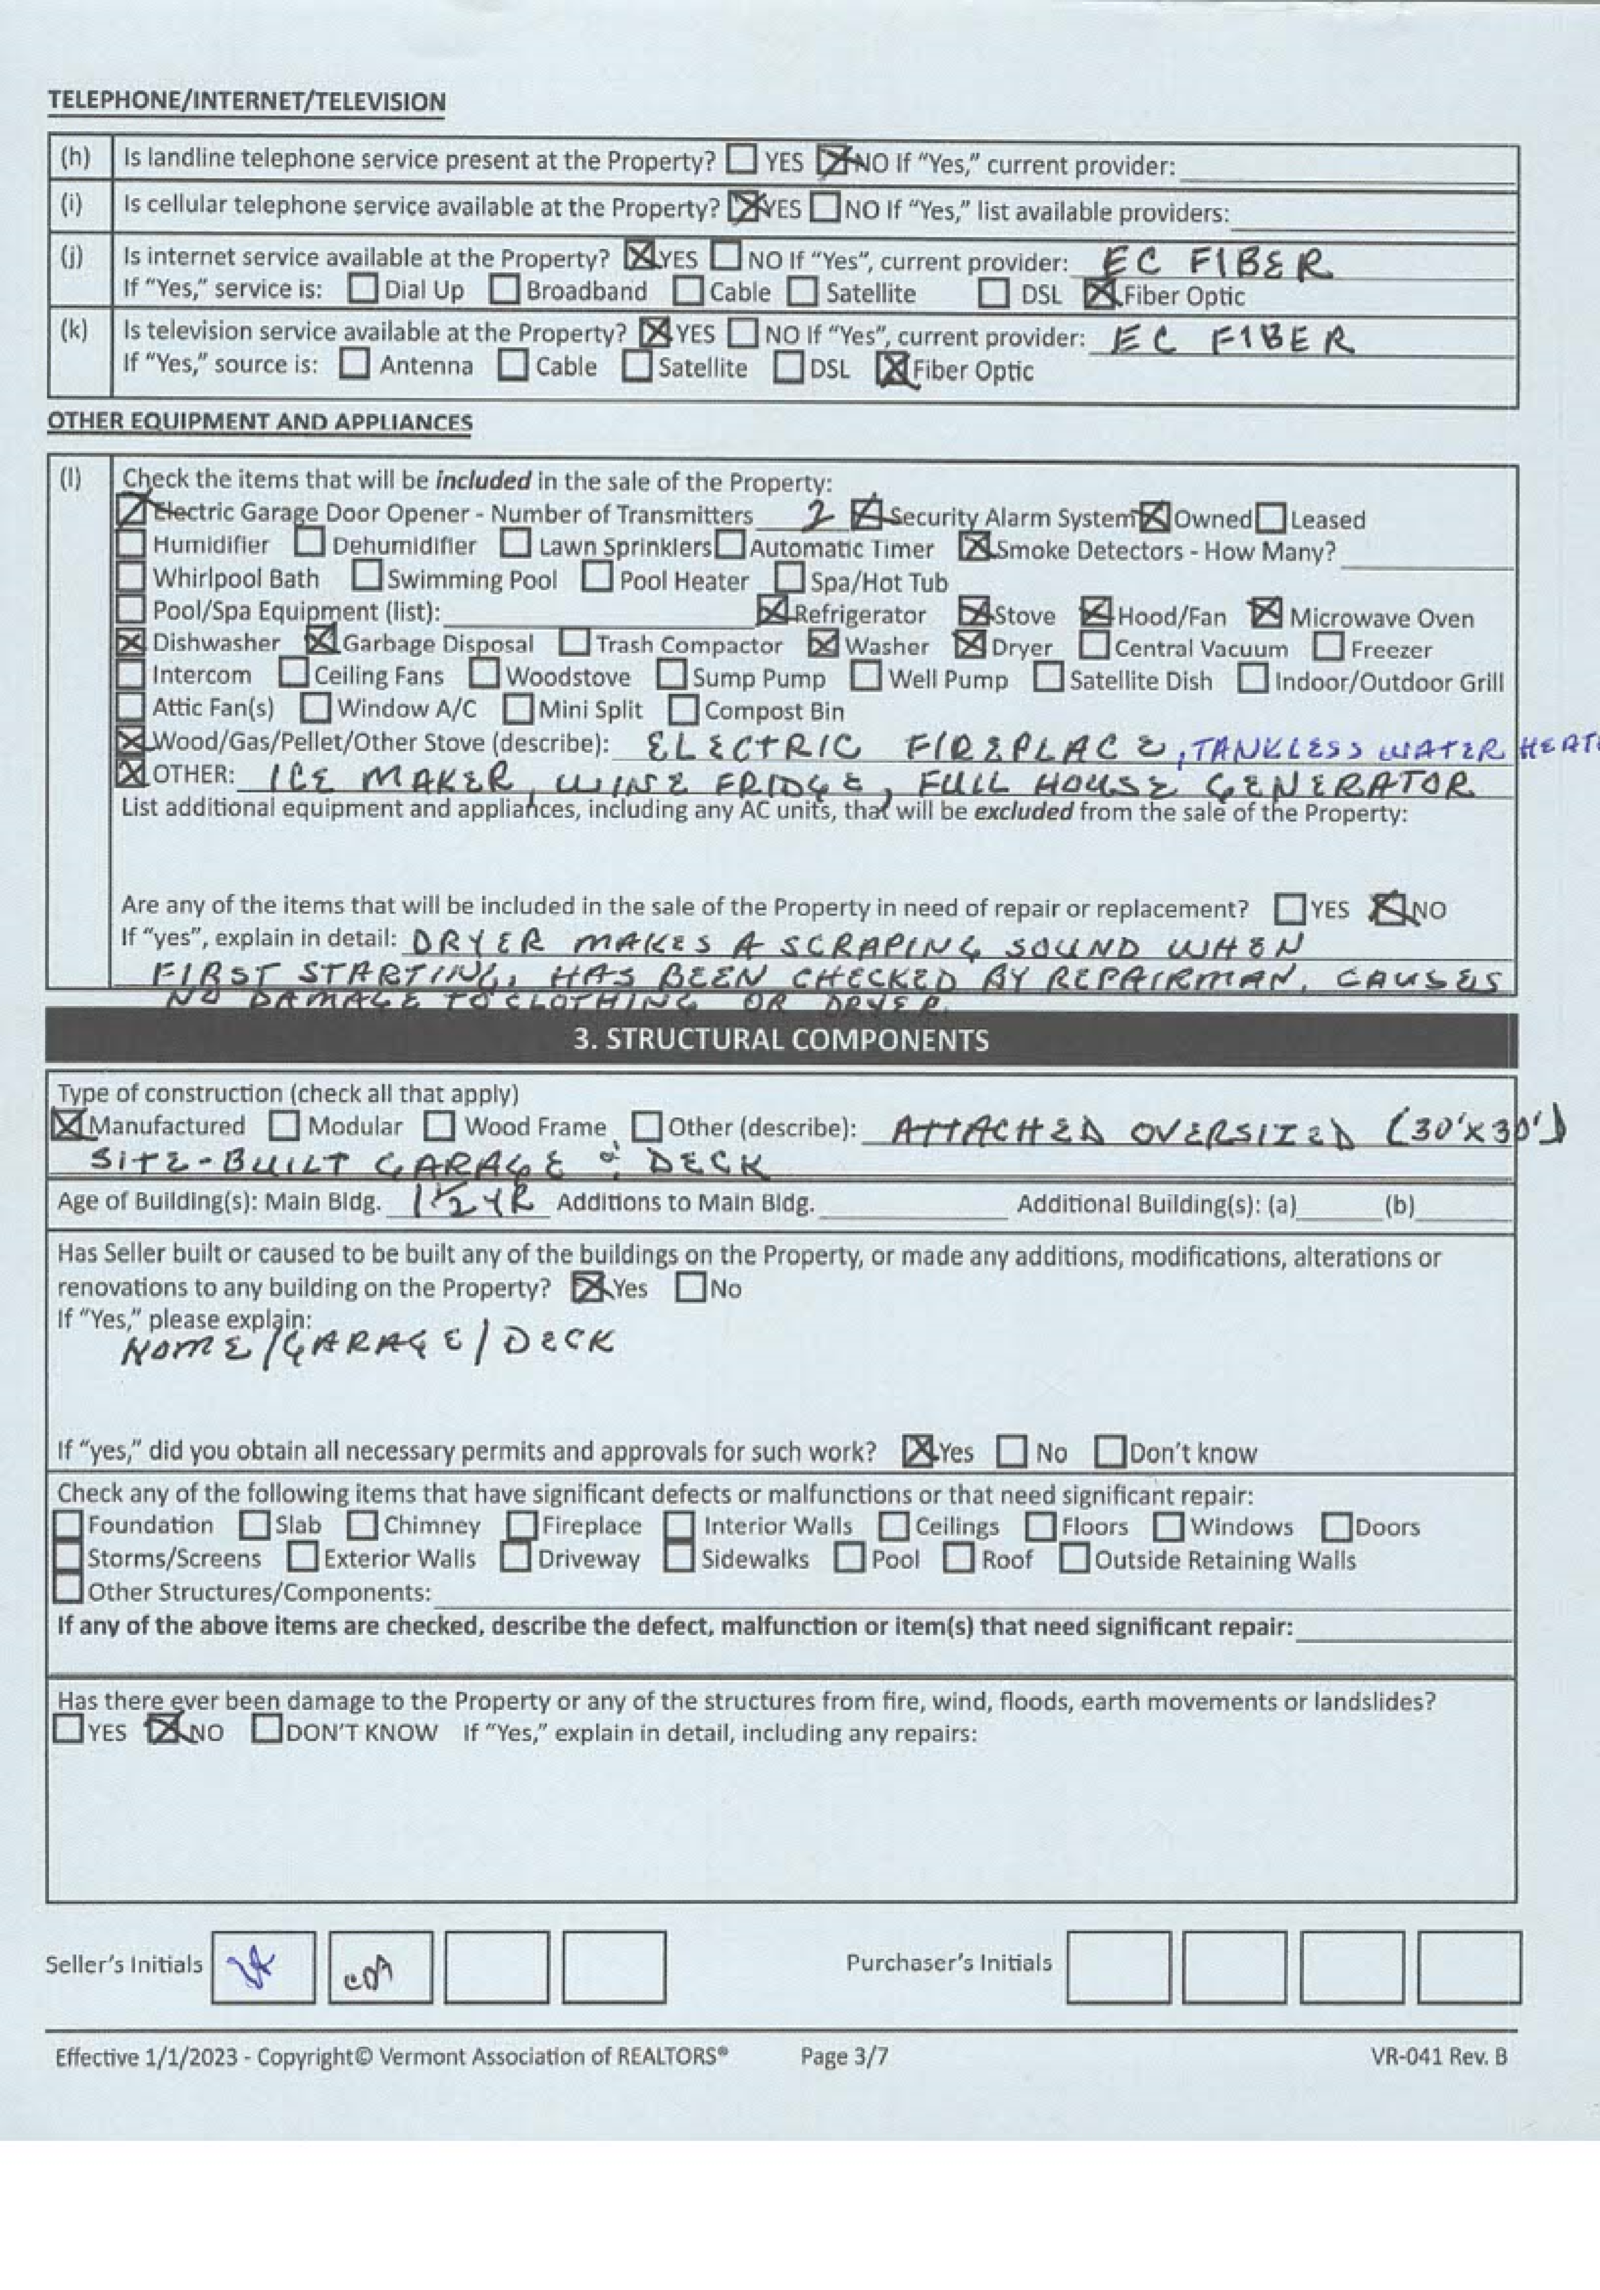 TELEPHONE/INTERNET/TELEVISION
(h) Is landline telephone service present at the Property? ☐ YES ☒ NO If "Yes," current provider:
(i) Is cellular telephone service available at the Property? ☒ YES ☐ NO If "Yes," list available providers:
(j) Is internet service available at the Property? ☒ YES ☐ NO If "Yes", current provider: EC FIBER
If "Yes," service is: ☐ Dial Up ☐ Broadband ☐ Cable ☐ Satellite ☐ DSL ☒ Fiber Optic
(k) Is television service available at the Property? ☒ YES ☐ NO If "Yes", current provider: EC FIBER
If "Yes," source is: ☐ Antenna ☐ Cable ☐ Satellite ☐ DSL ☒ Fiber Optic
OTHER EQUIPMENT AND APPLIANCES
(l) Check the items that will be included in the sale of the Property:
☒ Electric Garage Door Opener - Number of Transmitters 2 ☒ Security Alarm System ☒ Owned ☐ Leased
☐ Humidifier ☐ Dehumidifier ☐ Lawn Sprinklers ☐ Automatic Timer ☒ Smoke Detectors - How Many?
☐ Whirlpool Bath ☐ Swimming Pool ☐ Pool Heater ☐ Spa/Hot Tub
☐ Pool/Spa Equipment (list): ☒ Refrigerator ☒ Stove ☒ Hood/Fan ☒ Microwave Oven
☒ Dishwasher ☒ Garbage Disposal ☐ Trash Compactor ☒ Washer ☒ Dryer ☐ Central Vacuum ☐ Freezer
☐ Intercom ☐ Ceiling Fans ☐ Woodstove ☐ Sump Pump ☐ Well Pump ☐ Satellite Dish ☐ Indoor/Outdoor Grill
☐ Attic Fan(s) ☐ Window A/C ☐ Mini Split ☐ Compost Bin
☒ Wood/Gas/Pellet/Other Stove (describe): ELECTRIC FIREPLACE, TANKLESS WATER HEAT
☒ OTHER: ICE MAKER, WINE FRIDGE, FULL HOUSE GENERATOR
List additional equipment and appliances, including any AC units, that will be excluded from the sale of the Property:
Are any of the items that will be included in the sale of the Property in need of repair or replacement? ☐ YES ☒ NO
If "yes", explain in detail: DRYER MAKES A SCRAPING SOUND WHEN
FIRST STARTING, HAS BEEN CHECKED BY REPAIRMAN. CAUSES
NO DAMAGE TO CLOTHING OR DRYER.
3. STRUCTURAL COMPONENTS
Type of construction (check all that apply)
☒ Manufactured ☐ Modular ☐ Wood Frame ☐ Other (describe): ATTACHED OVERSIZED (30'X30')
SITE-BUILT GARAGE & DECK
Age of Building(s): Main Bldg. 1½ YR Additions to Main Bldg. Additional Building(s): (a) (b)
Has Seller built or caused to be built any of the buildings on the Property, or made any additions, modifications, alterations or
renovations to any building on the Property? ☒ Yes ☐ No
If "Yes," please explain:
HOME/GARAGE/DECK
If "yes," did you obtain all necessary permits and approvals for such work? ☒ Yes ☐ No ☐ Don't know
Check any of the following items that have significant defects or malfunctions or that need significant repair:
☐ Foundation ☐ Slab ☐ Chimney ☐ Fireplace ☐ Interior Walls ☐ Ceilings ☐ Floors ☐ Windows ☐ Doors
☐ Storms/Screens ☐ Exterior Walls ☐ Driveway ☐ Sidewalks ☐ Pool ☐ Roof ☐ Outside Retaining Walls
☐ Other Structures/Components:
If any of the above items are checked, describe the defect, malfunction or item(s) that need significant repair:
Has there ever been damage to the Property or any of the structures from fire, wind, floods, earth movements or landslides?
☐ YES ☒ NO ☐ DON'T KNOW If "Yes," explain in detail, including any repairs:
Seller's Initials Purchaser's Initials
Effective 1/1/2023 - Copyright© Vermont Association of REALTORS® Page 3/7 VR-041 Rev. B